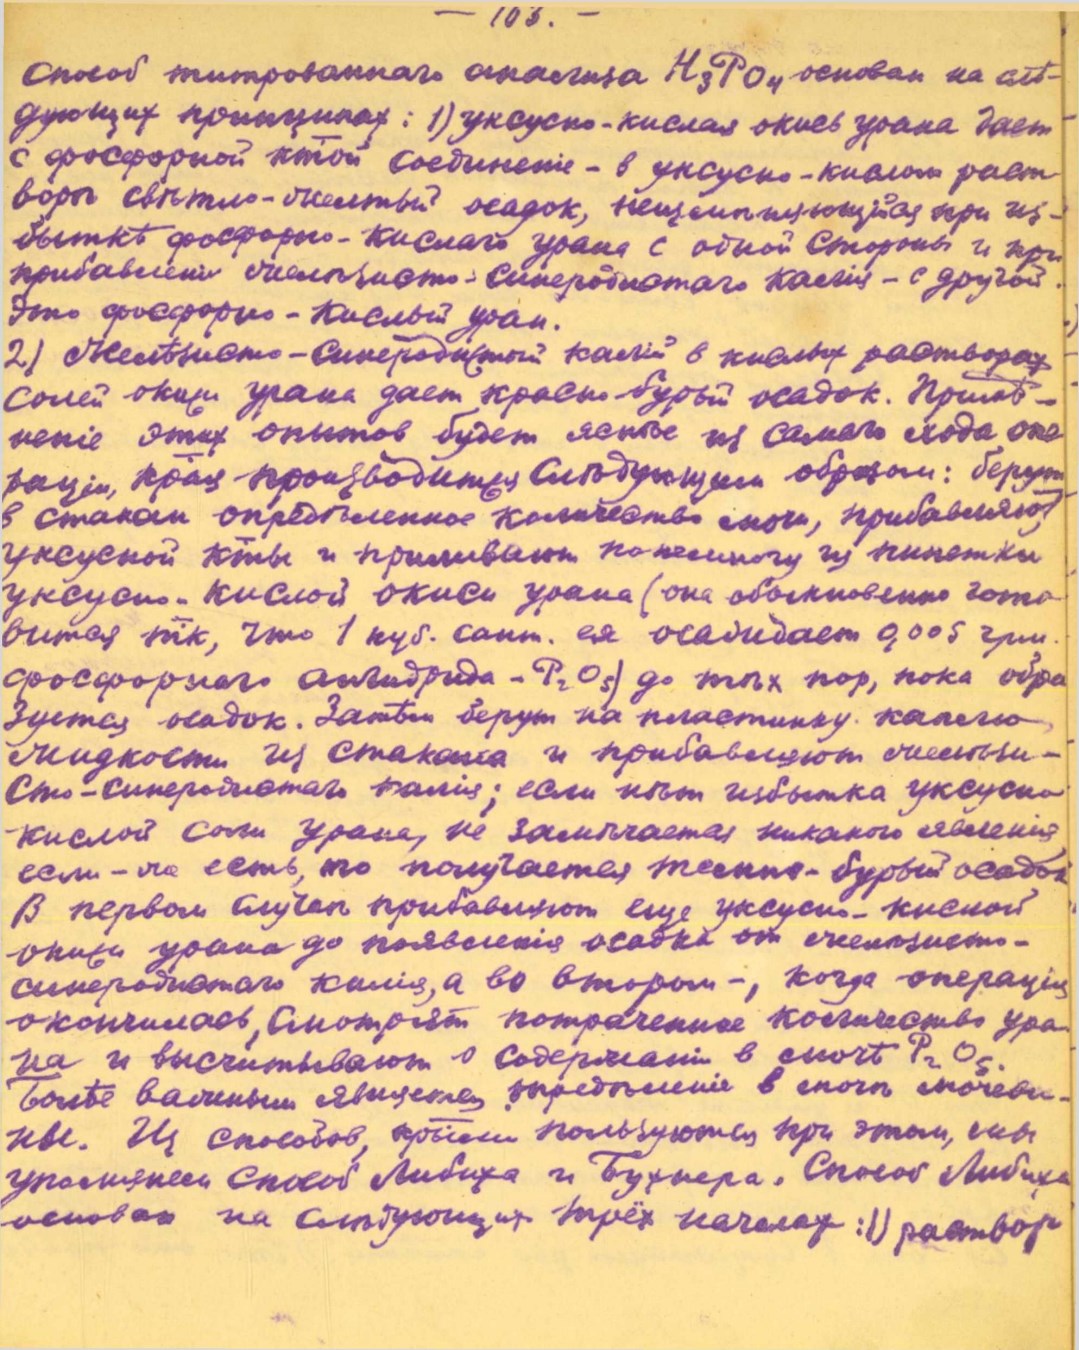 — 103. —
Способ титрованнаго анализа H₃PO₄ основан на слѣ-
дующих принципах: 1) уксусно-кислая окись урана дает
с фосфорной ктой соединеніе - в уксусно-кислом раст
ворѣ свѣтло-желтый осадок, при из-
быткѣ фосфорно-кислаго урана с одной стороны и при
прибавленіи желѣзисто-синеродистаго калія - с другой.
Это фосфорно-кислый уран.
2) Желѣзисто-синеродистый калій в кислых растворах
солей окиси урана дает красно-бурый осадок. Примѣ-
неніе этих опытов будет яснѣе из самаго хода опе
раціи, края производится слѣдующим образом: берут
в стакан опредѣленное количество мочи, прибавляют
уксусной кты и приливают понемногу из пипетки
уксусно-кислой окиси урана (она обыкновенно гото
вится тк, что 1 куб. сант. ея осаждает 0,005 грм.
фосфорнаго ангидрида - P₂O₅) до тѣх пор, пока обра
зуется осадок. Затѣм берут на пластинку каплю
жидкости из стакана и прибавляют желѣзи-
сто-синеродистаго калія; если нѣт избытка уксусно
кислой соли урана, не замѣчается никакого явленія
если-же есть, то получается темно-бурый осадок
В первом случаѣ прибавляют еще уксусно-кислой
окиси урана до появленія осадка от желѣзисто-
синеродистаго калія, а во втором -, когда операція
окончилась, смотрят потраченное количество ура
на и высчитывают о содержаніи в мочѣ P₂O₅.
Болѣе важным является опредѣленіе в мочѣ мочеви-
ны. Из способов, крыми пользуются при этом, мы
упомянем способ Либиха и Бухнера. Способ Либиха
основан на слѣдующих трёх началах: 1) раствор